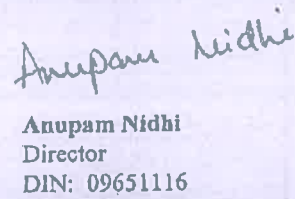 Anupam Nidhi
Anupam Nidhi
Director
DIN: 09651116